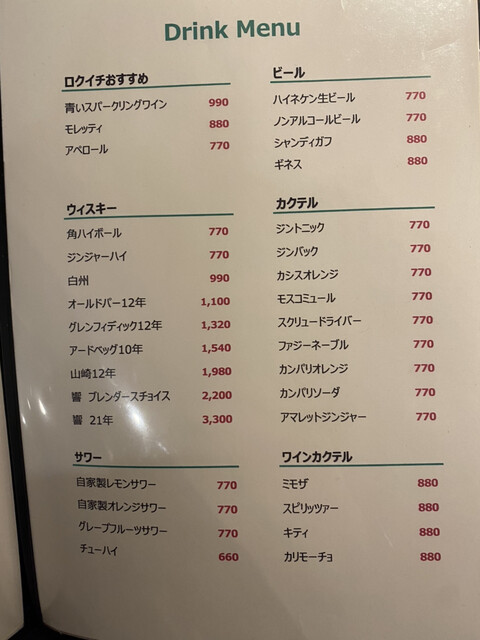 Drink Menu
ロクイチおすすめ
青いスパークリングワイン 990
モレッティ 880
アペロール 770
ビール
ハイネケン生ビール 770
ノンアルコールビール 770
シャンディガフ 880
ギネス 880
ウィスキー
角ハイボール 770
ジンジャーハイ 770
白州 990
オールドパー12年 1,100
グレンフィディック12年 1,320
アードベッグ10年 1,540
山崎12年 1,980
響 ブレンダースチョイス 2,200
響 21年 3,300
カクテル
ジントニック 770
ジンバック 770
カシスオレンジ 770
モスコミュール 770
スクリュードライバー 770
ファジーネーブル 770
カンパリオレンジ 770
カンパリソーダ 770
アマレットジンジャー 770
サワー
自家製レモンサワー 770
自家製オレンジサワー 770
グレープフルーツサワー 770
チューハイ 660
ワインカクテル
ミモザ 880
スピリッツァー 880
キティ 880
カリモーチョ 880